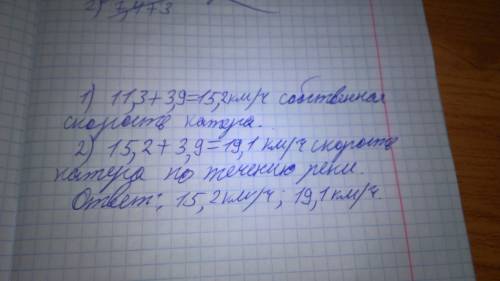 2) 3,4+3
1) 11,3+3,9=15,2км/ч собственная
скорость катера.
2) 15,2+3,9=19,1 км/ч скорость
катера по течению реки.
Ответ: 15,2км/ч; 19,1км/ч.